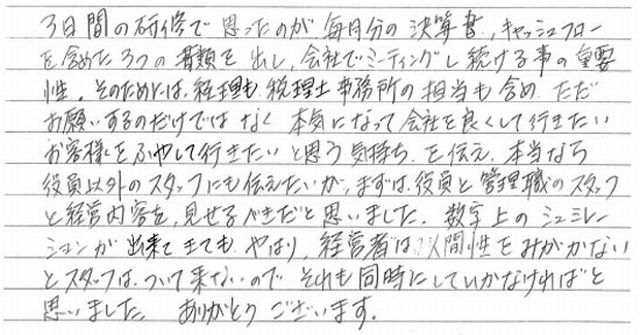 3日間の研修で思ったのが毎月分の決算書、キャッシュフロー
を含めた3つの書類を出し、会社でミーティングし続ける事の重要
性。そのためには、経理も税理士事務所の担当も含め、ただ
お願いするのだけではなく本気になって会社を良くして行きたい
お客様をふやして行きたいと思う気持ちを伝え、本当なら
役員以外のスタッフにも伝えたいが、まずは、役員と管理職のスタッフ
と経営内容を、見せるべきだと思いました。数字上のシュミレー
ションが出来てもやはり、経営者は人間性をみがかない
とスタッフは、ついて来ないので それも同時にしていかなければと
思いました。ありがとうございます。